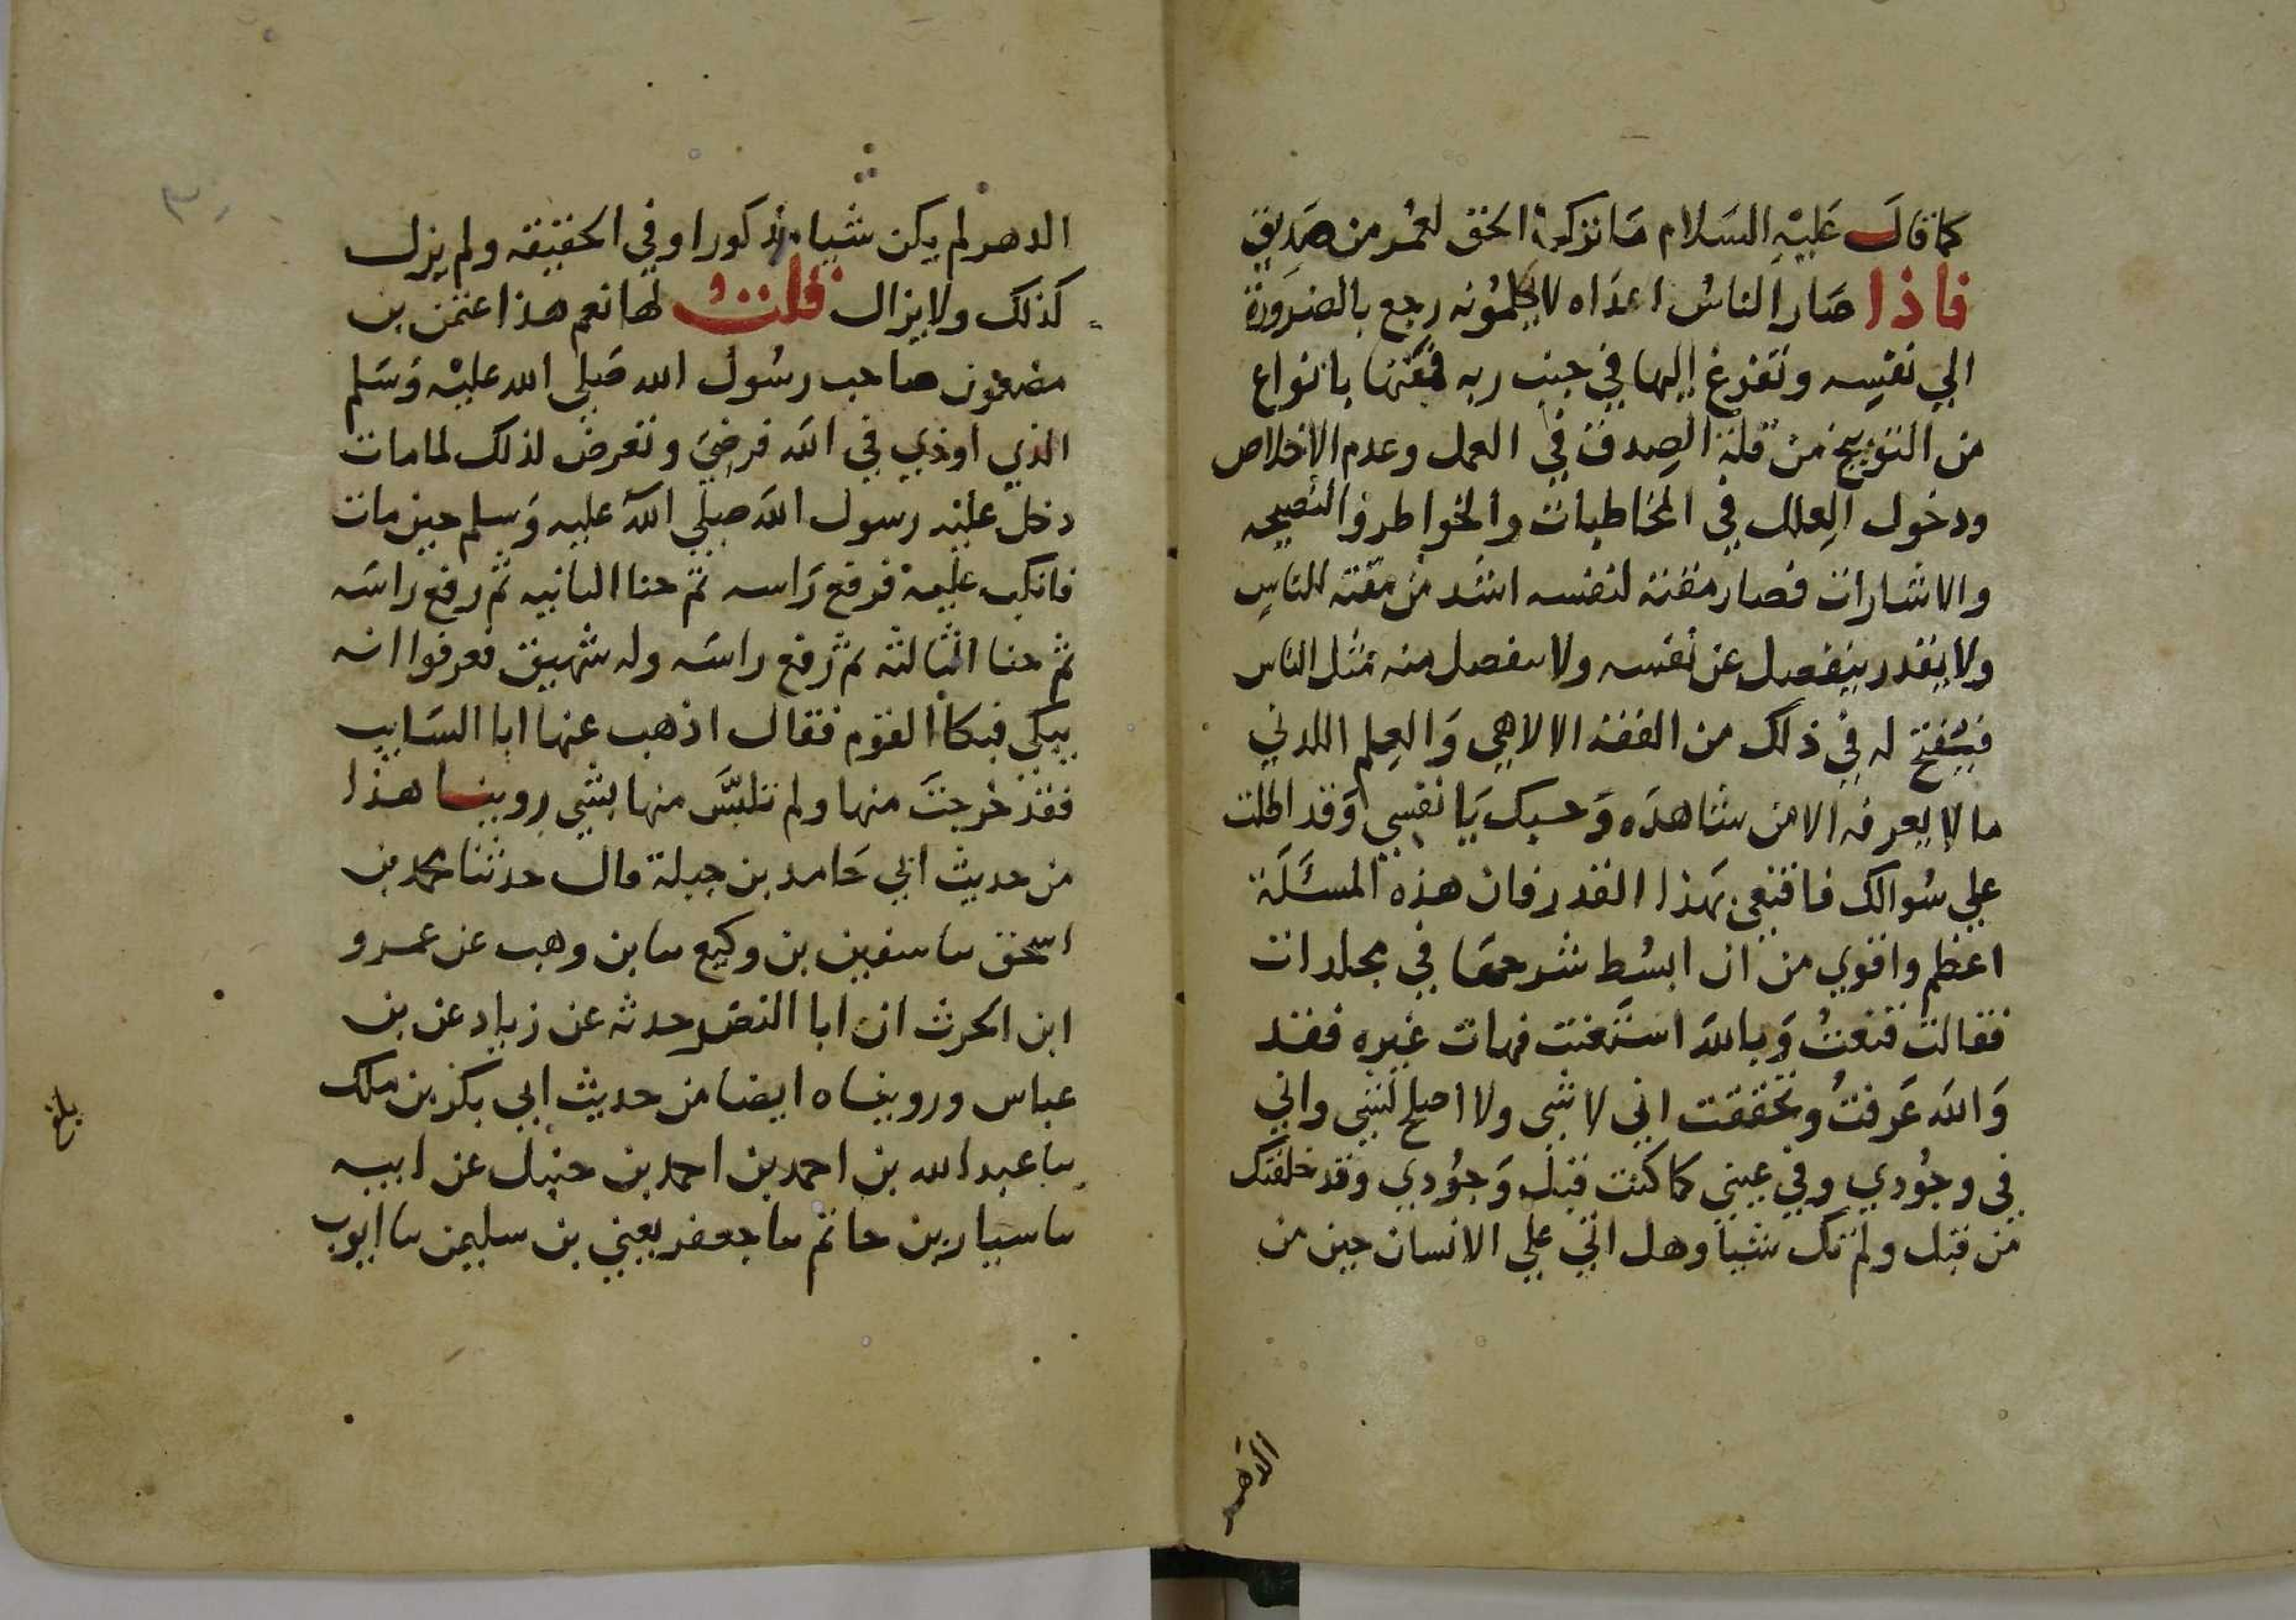 كما قال عَليْهِ السَلام مَا تركَ الحق لعُمر من صَديق
فاذا صَار الناسُ اعدَاه لا يكلمُونه رجع بالضرَورَة
الي نفسِه وتفرغ إليها في جنب ربه فمقتها بانواع
من التوبيخ من قلة الصِدق في العمل وعدم الاخلاص
ودخول العِلل في المخاطبات والخواطر والنصيحه
والاشارات فصار مقته لنفسه اشد من مقته للناس
ولا يقدر ينفصل عن نفسه ولا سفصل منه مثل الناس
فيُفتح له في ذلك من الفقه الالاهي وَالعِلم اللدني
ما لا يعرفه الا من شاهدَه وَحسبك يَا نفسِي وَقد اطلت
علي سُوالك فاقنعي بهذا القدر فان هذه المسئَلَة
اعظم واقوي من ان ابسُط شرحهَا في مجلدات
فقالت قنعتُ وَبالله استَعنت فهات غيره فقد
وَالله عَرفتُ وتحققت اني لا شي ولا اصلح لشي واني
في وجُودي وفي عيني كما كنت قبل وَجوُدي وقد خلقتك
من قبل ولم تك شيا وهل اتي علي الانسان حين من
الدهر
الدهر لم يكن شيا مذكورا وفي الحقيقه ولم يزل
كذلك ولا يزال قلتُ لها نعم هذا عثمن بن
مضعون صاحب رسُول الله صَلي الله عليْه وَسَلم
الذي اوذي في الله فرضِيَ وتعرض لذلك لما مات
دخل عليْه رسول الله صلي الله عليه وَسلم حين مات
فانكب عليه فرفع رَاسه ثم حنا الثانيه ثم رفع راسَه
ثم حنا الثالثه ثم رفع راسَه وله شهيق فعرفوا انه
يبكي فبكا القوم فقال اذهب عنها ابا السَايب
فقد خرجتَ منها ولم تتلبَّس منها بشي روينا هذا
من حديث ابي حَامد بن جبلة قال حدثنا محمد بن
اسحق سا سفين بن وكيع سا بن وهب عن عمرو
ابن الحرث ان ابا النضر حدثه عن زياد عن بن
عباس ورويناه ايضا من حديث ابي بكر بن ملك
سا عبد الله بن احمد بن احمد بن حنبل عن ابيه
سا سيار بن حاتم سا جعفر يعني بن سليمن سا ايوب
بلغ
٣٠